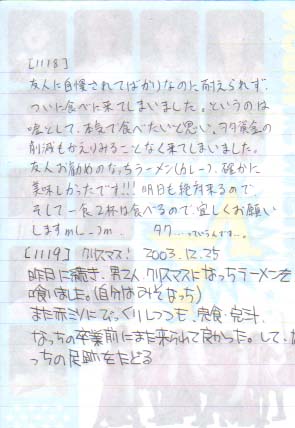 [1118]
友人に自慢されてばかりなのに耐えられず、
ついに食べに来てしまいました。というのは
嘘として、本気で食べたいと思い、ヲタ資金の
削減もかえりみることなく来てしまいました。
友人お勧めのなっちラーメン(カレー)、確かに
美味しかったです!!! 明日も絶対来るので、
そして一食2杯は食べるので、宜しくお願い
しますm(_ _)m
[1119] クリスマス! 2003.12.25
昨日に続き、男2人、クリスマスになっちラーメンを
喰いました。(自分はみそなっち)
また赤ミソにびっくりしつつも、完食・完汁、
なっちの卒業前にまた来られて良かった。して、な
っちの足跡をたどる